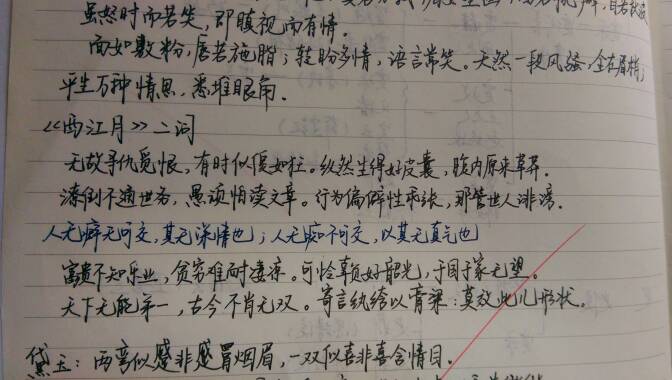 虽怒时而若笑，即瞋视而有情。
面如敷粉，唇若施脂；转盼多情，语言常笑。天然一段风骚，全在眉梢；
平生万种情思，悉堆眼角.
《西江月》二词
无故寻仇觅恨，有时似傻如狂。纵然生得好皮囊，腹内原来草莽.
潦倒不通世务，愚顽怕读文章。行为偏僻性乖张，那管世人诽谤.
人无癖不可交，其无深情也；人无痴不可交，以其无真气也
富贵不知乐业，贫穷难耐凄凉。可怜辜负好韶光，于国于家无望。
天下无能第一，古今不肖无双。寄言纨绔以膏粱：莫效此儿形状。
黛玉：两弯似蹙非蹙罥烟眉，一双似喜非喜含情目.